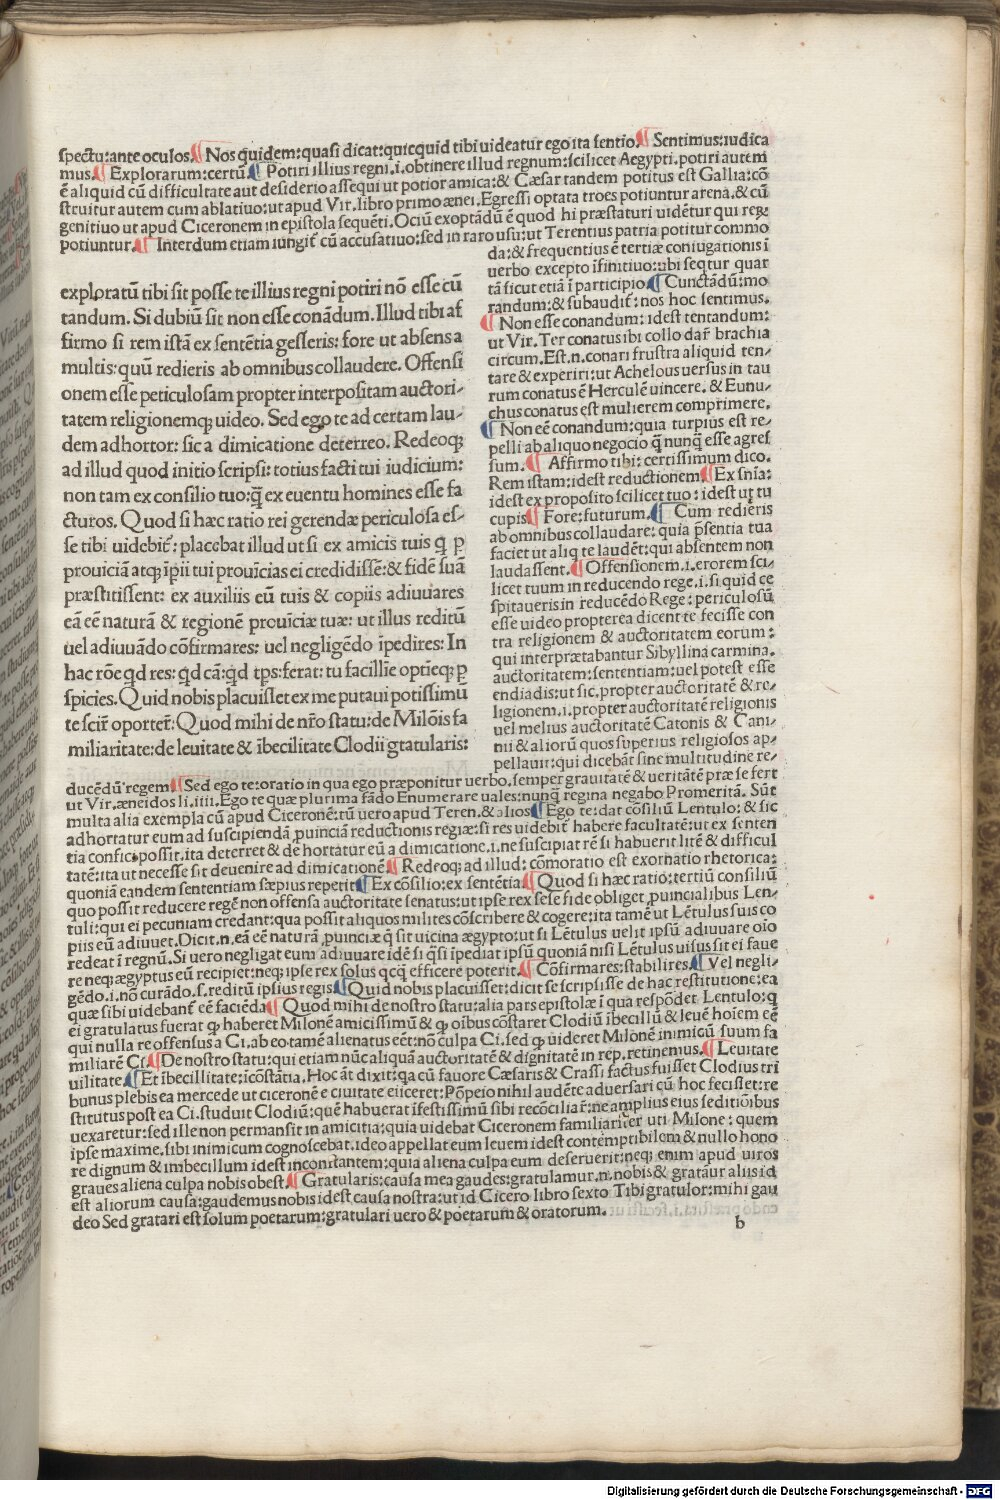 spectu:ante oculos.¶ Nos quidem:quasi dicat:quicquid tibi uideatur ego ita sentio.¶ Sentimus:iudica
mus.¶ Explorarum:certū¶ Potiri illius regni.i.obtinere illud regnum:scilicet Aegypti.potiri autem
ē aliquid cū difficultate aut desiderio assequi ut potior amica:& Cæsar tandem potitus est Gallia:cō
struitur autem cum ablatiuo:ut apud Vir.libro primo ænei.Egressi optata troes potiuntur arena.& cū
genitiuo ut apud Ciceronem in epistola sequēti.Ociū exoptādū ē quod hi præstaturi uidētur qui reg:
potiuntur.¶ Interdum etiam iungit̄ cū accusatiuo:sed in raro usu:ut Terentius patria potitur commo
da:& frequentius ē tertiæ coniugationis ī
uerbo excepto īfinitiuo:ubi seqtur quar
tā sicut etiā ī participio.¶ Cunctādū:mo
randum:& subaudit̄:nos hoc sentimus.
¶ Non esse conandum:idest tentandum:
ut Vir.Ter conatus ibi collo dar̄ brachia
circum.Est.n.conari frustra aliquid ten-
tare & experiri:ut Achelous uersus in tau
rum conatus ē Herculē uincere.& Eunu-
chus conatus est mulierem comprimere.
¶ Non eē conandum:quia turpius est re-
pelli ab aliquo negocio q̄ nunq̄ esse agres
sum.¶ Affirmo tibi:certissimum dico.
Rem istam:idest reductionem¶ Ex snīa:
idest ex proposito scilicet tuo:idest ut tu
cupis¶ Fore:futurum.¶ Cum redieris
ab omnibus collaudare:quia p̄sentia tua
faciet ut aliq te laudēt:qui absentem non
laudassent.¶ Offensionem.i.erorem sci-
licet tuum in reducendo rege.i.si quid ce
spitaueris in reducēdo Rege:periculosū
esse uideo propterea dicent te fecisse con
tra religionem & auctoritatem eorum:
qui interprætabantur Sibyllina carmina.
auctoritatem:sententiam:uel potest esse
endiadis:ut sic.propter auctoritatē & re-
ligionem.i.propter auctoritatē religionis
uel melius auctoritatē Catonis & Cani-
nii & aliorū quos superius religiosos ap-
pellauit:qui dicebāt sine multitudine re-
exploratū tibi sit posse te illius regni potiri nō esse cū
tandum. Si dubiū sit non esse conādum. Illud tibi af
firmo si rem istā ex sentētia gesseris: fore ut absens a
multis: quū redieris ab omnibus collaudere. Offensi
onem esse periculosam propter interpositam auctori-
tatem religionemq; uideo. Sed ego te ad certam lau-
dem adhortor: sic a dimicatione deterreo. Redeoq;
ad illud quod initio scripsi: totius facti tui iudicium:
non tam ex consilio tuo:q̄ ex euentu homines esse fa
cturos. Quod si hæc ratio rei gerendæ periculosa es-
se tibi uidebit̄: placebat illud ut si ex amicis tuis q̄ ꝑ
prouiciā atq; īpii tui prouīcias ei credidissē:& fidē suā
præstitissent: ex auxiliis eū tuis & copiis adiuuares
eā eē naturā & regionē prouīciæ tuæ: ut illus reditū
uel adiuuādo cōfirmares: uel negligēdo īpedires: In
hac rōe qd res: qd cā: qd tps: ferat: tu facillīe optīeq; ꝑ
spicies. Quid nobis placuisset ex me putaui potissimū
te scir̄ oportet̄: Quod mihi de nr̄o statu: de Milōis fa
miliaritate: de leuitate & ībecilitate Clodii gtatularis:
ducēdū regem¶ Sed ego te:oratio in qua ego præponitur uerbo.semper grauitatē & ueritatē præ se fert
ut Vir.æneidos li.iiii.Ego te quæ plurima fādo Enumerare uales:nunq̄ regina negabo Promeritā. Sūt
multa alia exempla cū apud Ciceronē:tū uero apud Teren.& alios¶ Ego te:dat cōsiliū Lentulo:& sic
adhortatur eum ad suscipiendā ꝓuinciā reductionis regiæ:si res uidebit̄ habere facultatē:ut ex senten
tia confici possit.ita deterret & de hortatur eū a dimicatione.i.ne suscipiat rē si habuerit litē & difficul
tatē:ita ut necesse sit deuenire ad dimicationē¶ Redeoq; ad illud: cōmoratio est exornatio rhetorica:
quoniā eandem sententiam sæpius repetit¶ Ex cōsilio:ex sentētia¶ Quod si hæc ratio:tertiū consiliū
quo possit reducere regē non offensa auctoritate senatus:ut ipse rex sese fide obliget ꝓuincialibus Len-
tuli:qui ei pecuniam credant:qua possit aliquos milites cōscribere & cogere:ita tamē ut Lētulus suis co
piis eū adiuuet.Dicit.n.eā eē naturā ꝓuinciæ q̄ sit uicina ægypto:ut si Lētulus uelit ipsū adiuuare oīo
redeat ī regnū. Si uero negligat eum adiuuare idē si qsi īpediat ipsū quoniā nisi Lētulus uisus sit ei faue
re neq; ægyptus eū recipiet:neq; ipse rex solus qcq̄ efficere poterit.¶ Cōfirmares:stabilires.¶ Vel negli-
gēdo.i.nō curādo.s.reditū ipsius regis¶ Quid nobis placuisset:dicit se scripsisse de hac restitutione:ea
quæ sibi uidebant̄ eē faciēda¶ Quod mihi de nostro statu:alia pars epistolæ ī qua respōdet Lentulo:q
ei gratulatus fuerat qꝫ haberet Milonē amicissimū & qꝫ oībus cōstaret Clodiū ībecillū & leuē hoīem eē
qui nulla re offensus a Ci.ab eo tamē alienatus eēt:nō culpa Ci.sed qꝫ uideret Milonē inimicū suum fa
miliarē Ci.¶ De nostro statu:qui etiam nūc aliquā auctoritatē & dignitatē in rep.retinemus.¶ Leuitate
uilitate.¶ Et ībecillitate:īcōstātia.Hoc āt dixit:qa cū fauore Cæsaris & Crassi factus fuisset Clodius tri
bunus plebis ea mercede ut ciceronē e ciuitate eiiceret:Pōpeio nihil audēte aduersari cū hoc fecisset:re
stitutus post ea Ci.studuit Clodiū:quē habuerat īfestissimū sibi recōciliar̄:ne amplius eius seditiōibus
uexaretur:sed ille non permansit in amicitia:quia uidebat Ciceronem familiariter uti Milone: quem
ipse maxime.sibi inimicum cognoscebat.ideo appellat eum leuem idest contemptibilem & nullo hono
re dignum & imbecillum idest inconstantem:quia aliena culpa eum deseruerit:neq; enim apud uiros
graues aliena culpa nobis obest.¶ Gratularis:causa mea gaudes:gratulamur.n.nobis & gratāur aliis id
est aliorum causa:gaudemus nobis idest causa nostra:ut id Cicero libro sexto Tibi gratulor:mihi gau
deo Sed gratari est solum poetarum:gratulari uero & poetarum & oratorum.
b
Digitalisierung gefördert durch die Deutsche Forschungsgemeinschaft - DFG